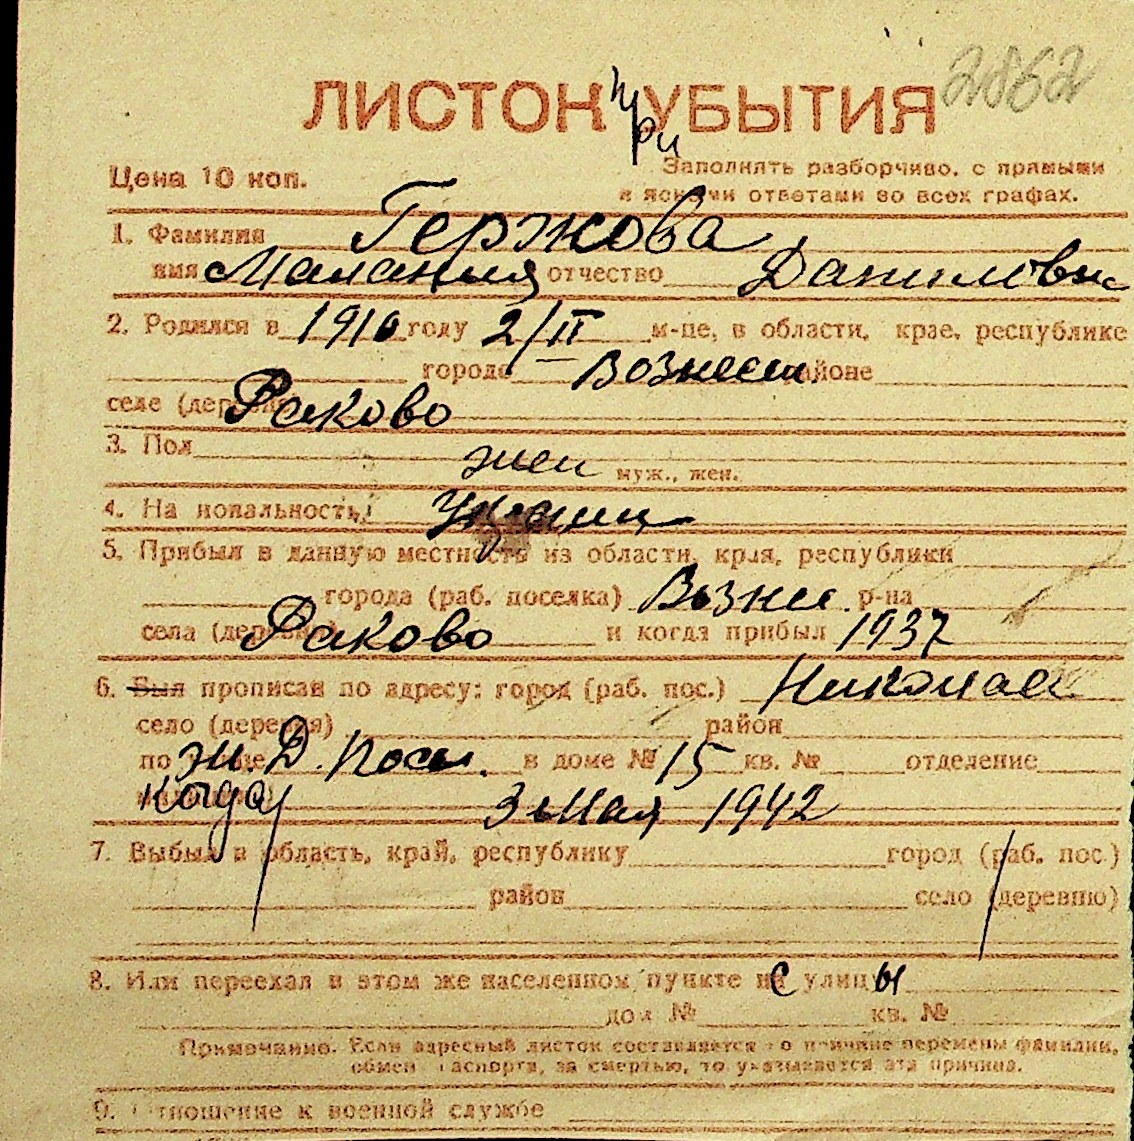 2862
ЛИСТОК при УБЫТИЯ
Цена 10 коп.
Заполнять разборчиво, с прямыми
и ясными ответами во всех графах.
1. Фамилия Гержова
имя Малания отчество Даниловн
2. Родился в 1910 году 2/II м-це, в области, крае, республике
городе Вознесен районе
селе (деревне) Раково
3. Пол жен муж., жен.
4. Национальность Украин
5. Прибыл в данную местность из области, края, республики
города (раб. поселка) Возне р-на
села (деревни) Раково и когда прибыл 1937
6. Был прописан по адресу: город (раб. пос.) Николаев
село (деревня) район
по улице ж. Д. Посел. в доме № 15 кв. № отделение
когда 3 Мая 1942
7. Выбыл в область, край, республику город (раб. пос.)
район село (деревню)
8. Или переехал в этом же населенном пункте с улицы
дом № кв. №
Примечание. Если адресный листок составляется по причине перемены фамилии,
обмен паспорта, за смертью, то указывается эта причина.
9. Отношение к военной службе